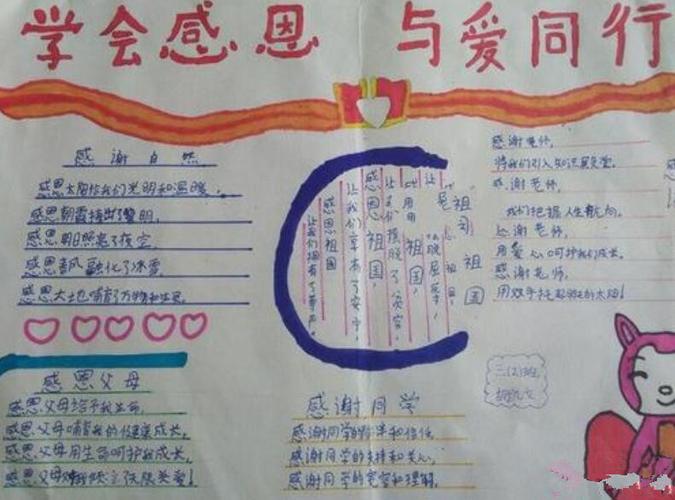 学会感恩 与爱同行
感谢自然
感恩太阳给我们光明和温暖，
感恩朝霞捧出了黎明，
感恩明月照亮了夜空，
感恩春风融化了冰雪，
感恩大地哺育了万物和生灵。
感恩祖国
让我们拥有了尊严。
感恩祖国，
让我们享有了安宁，
感恩祖国，
让我们摆脱了贫穷，
感谢老师，
将我们引入知识殿堂。
感谢老师，
我们把握人生航向。
感谢老师，
用爱心呵护我们成长。
感谢老师，
用双手托起明天的太阳！
感恩父母
感恩父母给予我生命，
感恩父母哺育我的健康成长，
感恩父母用生命呵护我成长，
感恩父母对我
关爱！
感谢同学
感谢同学的
和信任，
感谢同学的支持和关心，
感谢同学的宽容和理解，
三(2)班